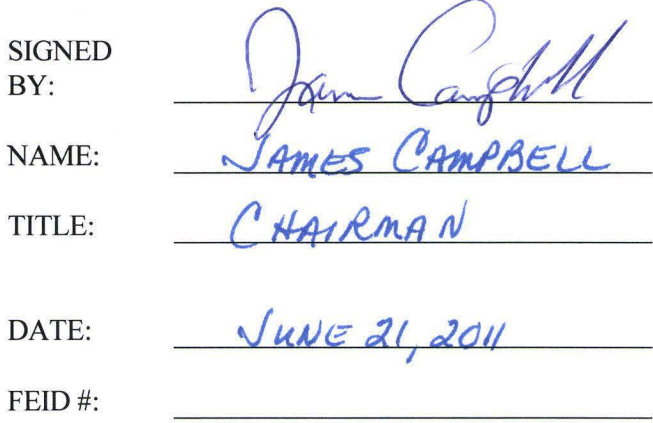 SIGNED
BY: James Campbell
NAME: JAMES CAMPBELL
TITLE: CHAIRMAN
DATE: JUNE 21, 2011
FEID #: